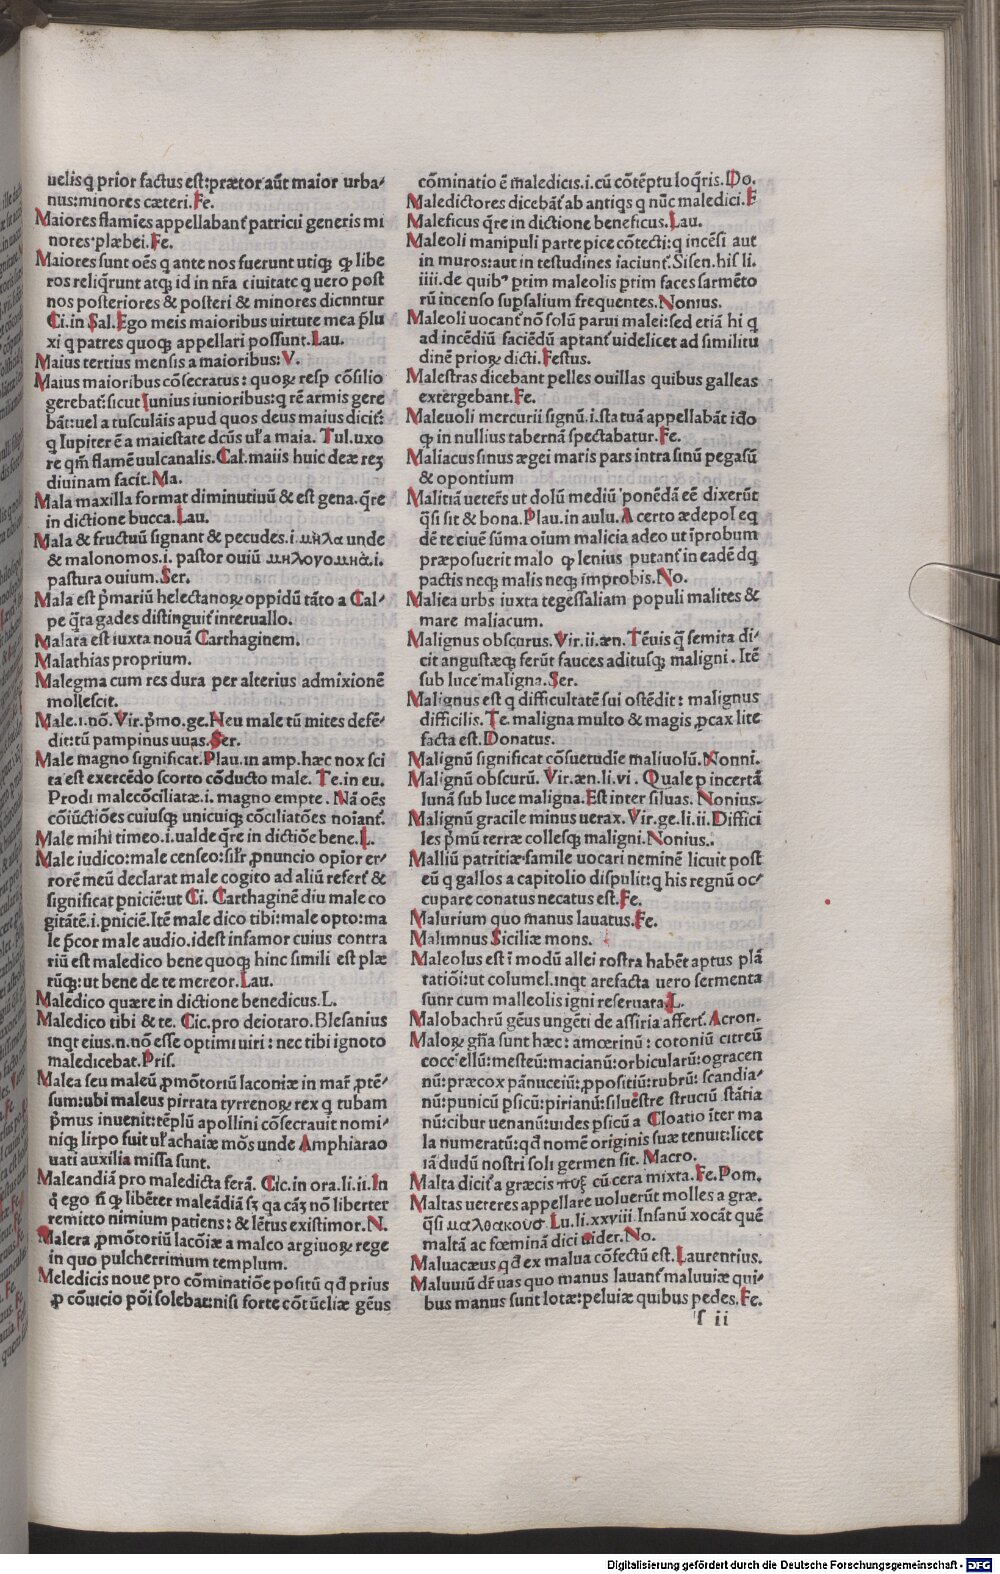 uelis q̃ prior factus est:prætor aũt maior urba⸗
nus:minores cæteri.Fe.
Maiores flamies appellabant᷑ patricii generis mi
nores plæbei.Fe.
Maiores sunt oẽs q ante nos fuerunt utiqꝫ ꝙ libe
ros reliq̃runt atqꝫ id in nr̃a ciuitate q uero post
nos posteriores & posteri & minores dicnntur
Ci.in Sal.Ego meis maioribus uirtute mea p̃lu
xi q patres quoqꝫ appellari possunt.Lau.
Maius tertius mensis a maioribus:V.
Maius maioribus cõsecratus: quoꝝ resp cõsilio
gerebat᷑:sicut Iunius iunioribus:q rẽ armis gere
bãt:uel a tusculãis apud quos deus maius dicit᷑:
q Iupiter ẽ a maiestate dcũs ul̃ a maia. Tul.uxo
re qm̃ flamẽ uulcanalis.Cal.maiis huic deæ reꝫ
diuinam facit.Ma.
Mala maxilla format diminutiuũ & est gena.q̃re
in dictione bucca.Lau.
Mala & fructuũ signant & pecudes.i.μηλα unde
& malonomos.i. pastor ouiũ μηλογομηὰ.i.
pastura ouium.Ser.
Mala est p̃mariũ helectanoꝝ oppidũ tãto a Cal⸗
pe q̃ta gades distinguit᷑ interuallo.
Malata est iuxta nouã Carthaginem.
Malathias proprium.
Malegma cum res dura per alterius admixionẽ
mollescit.
Male.i.nõ.Vir.p̃mo.ge.Heu male tũ mites defẽ⸗
dit:tũ pampinus uuas.Ser.
Male magno significat.Plau.in amp.hæc nox sci
ta est exercẽdo scorto cõducto male. Te.in eu.
Prodi malecõciliatæ.i. magno empte. Nã oẽs
cõiũctiões cuiusqꝫ unicuiqꝫ cõciliatões noiant᷑.
Male mihi timeo.i.ualde q̃re in dictiõe bene.L.
Male iudico:male censeo:sil̃r ꝓnuncio opior er⸗
rorẽ meũ declarat male cogito ad aliũ refert᷑ &
significat ꝑniciẽ:ut Ci. Carthaginẽ diu male co
gitãtẽ.i.ꝑniciẽ.Itẽ male dico tibi:male opto:ma
le p̃cor male audio.idest infamor cuius contra
riũ est maledico bene quoqꝫ hinc simili est plæ
rũqꝫ:ut bene de te mereor.Lau.
Maledico quære in dictione benedicus.L.
Maledico tibi & te. Cic.pro deiotaro.Blesanius
inqt eius.n.nõ esse optimi uiri : nec tibi ignoto
maledicebat.Pris.
Malea seu maleũ ꝓmõtoriũ laconiæ in mar̃ ꝓtẽ⸗
sum:ubi maleus pirrata tyrrenoꝝ rex q tubam
p̃mus inuenit:tẽplũ apollini cõsecrauit nomi⸗
niqꝫ lirpo fuit ul̃ achaiæ mõs unde Amphiarao
uati auxilia missa sunt.
Maleandiã pro maledicta ferã. Cic.in ora.li.ii.In
q̃ ego ñ ꝙ libẽter maleãdiã sꝫ qa cãꝫ nõ liberter
remitto nimium patiens: & lẽtus existimor.N.
Malera ꝓmõtoriũ lacõiæ a malco argiuoꝝ rege
in quo pulcherrimum templum.
Meledicis noue pro cõminatiõe positũ qđ prius
ꝓ cõuicio põi solebat:nisi forte cõt ũeliæ gẽus
cõminatio ẽ maledicis.i.cũ cõtẽptu loq̃ris.Do.
Maledictores dicebãt᷑ ab antiqs q nũc maledici.F
Maleficus q̃re in dictione beneficus.Lau.
Maleoli manipuli parte pice cõtecti:q incẽsi aut
in muros:aut in testudines iaciunt᷑.Sisen.his li.
iiii.de quibꝰ prim maleolis prim faces sarmẽto
rũ incenso supsalium frequentes.Nonius.
Maleoli uocant᷑ nõ solũ parui malei:sed etiã hi q
ad incẽdiũ faciẽdũ aptant᷑ uidelicet ad similitu
dinẽ prioꝝ dicti.Festus.
Malestras dicebant pelles ouillas quibus galleas
extergebant.Fe.
Maleuoli mercurii signũ.i.statuã appellabãt iđo
ꝙ in nullius tabernã spectabatur.Fe.
Maliacus sinus ægei maris pars intra sinũ pegasũ
& opontium
Malitiã ueter̃s ut dolũ mediũ ponẽdã eẽ dixerũt
q̃si sit & bona.Plau.in aulu.A certo ædepol eq
dẽ te ciuẽ sũma oium malicia adeo ut ĩprobum
præposuerit malo ꝙ lenius putant᷑ in eadẽ dq
pactis neqꝫ malis neqꝫ improbis.No.
Maliea urbs iuxta tegessaliam populi malites &
mare maliacum.
Malignus obscurus.Vir.ii.æn.Tẽuis q̃ semita di⸗
cit angustæqꝫ ferũt fauces aditusqꝫ maligni. Itẽ
sub luce maligna.Ser.
Malignus est q difficultatẽ sui ostẽdit: malignus
difficilis. Te. maligna multo & magis ꝓcax lite
facta est.Donatus.
Malignũ significat cõsuetudĩe maliuolũ.Nonni.
Malignũ obscurũ. Vir.æn.li.vi. Quale p incertã
lunã sub luce maligna.Est inter siluas. Nonius.
Malignũ gracile minus uerax.Vir.ge.li.ii.Diffici
les p̃mũ terræ collesqꝫ maligni.Nonius..
Malliũ patritiæ famile uocari neminẽ licuit post
eũ q gallos a capitolio dispulit:q his regnũ oc⸗
cupare conatus necatus est.Fe.
Malurium quo manus lauatus.Fe.
Malimnus Siciliæ mons.
Maleolus est ĩ modũ allei rostra habẽt aptus plã
tatiõi:ut columel.inqt arefacta uero sermenta
sunr cum malleolis igni reseruata.L.
Malobachrũ gẽus ungẽti de assiria affert᷑.Acron.
Maloꝝ gñа sunt hæc: amœrinũ: cotoniũ citreũ
coccellũ:mesteũ:macianũ:orbicularũ:ogracen
nũ:præcox pãnuceiũ:ꝓpositiũ:rubrũ: scandia⸗
nũ:punicũ psicũ:pirianũ:siluestre struciũ stãtia
nũ:cibur uenanũ:uides psicũ a Cloatio ĩter ma
la numeratũ:qđ nomẽ originis suæ tenuit:licet
iã dudũ nostri soli germen sit. Macro.
Malta dicit᷑ a græcis πυξ cũ cera mixta.Fe.Pom.
Maltas uereres appellare uoluerũt molles a græ.
q̃si μαλθακουσ.Lu.li.xxviii.Insanũ xocãt quẽ
maltã ac fœminã dici uider.No.
Maluacæus qđ ex malua cõfectũ est.Laurentius.
Maluuiũ dr̃ uas quo manus lauant᷑ maluuiæ qui⸗
bus manus sunt lotæ:peluiæ quibus pedes.Fe.
s ii
Digitalisierung gefördert durch die Deutsche Forschungsgemeinschaft - DFG